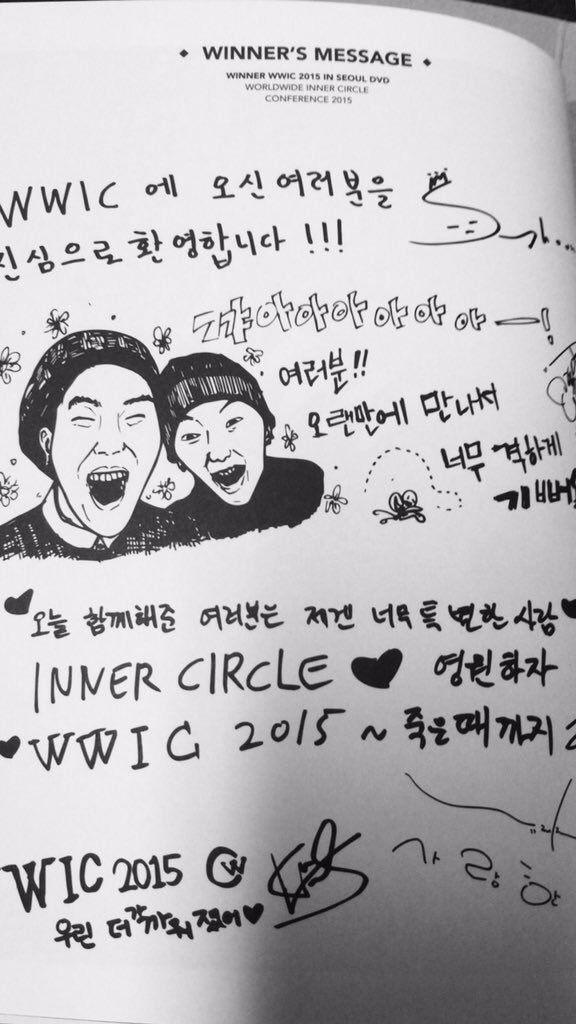 WINNER'S MESSAGE
WINNER WWIC 2015 IN SEOUL DVD
WORLDWIDE INNER CIRCLE
CONFERENCE 2015
WWIC 에 오신 여러분을
진심으로 환영합니다 !!!
꺄아아아아아아 —!
여러분!!
오랜만에 만나서
너무 격하게
기뻐
오늘 함께해준 여러분은 제겐 너무 특별한 사랑
INNER CIRCLE ♥ 영원하자
WWIC 2015 ~ 죽을때까지
WIC 2015
우린 더 가까워졌어♥